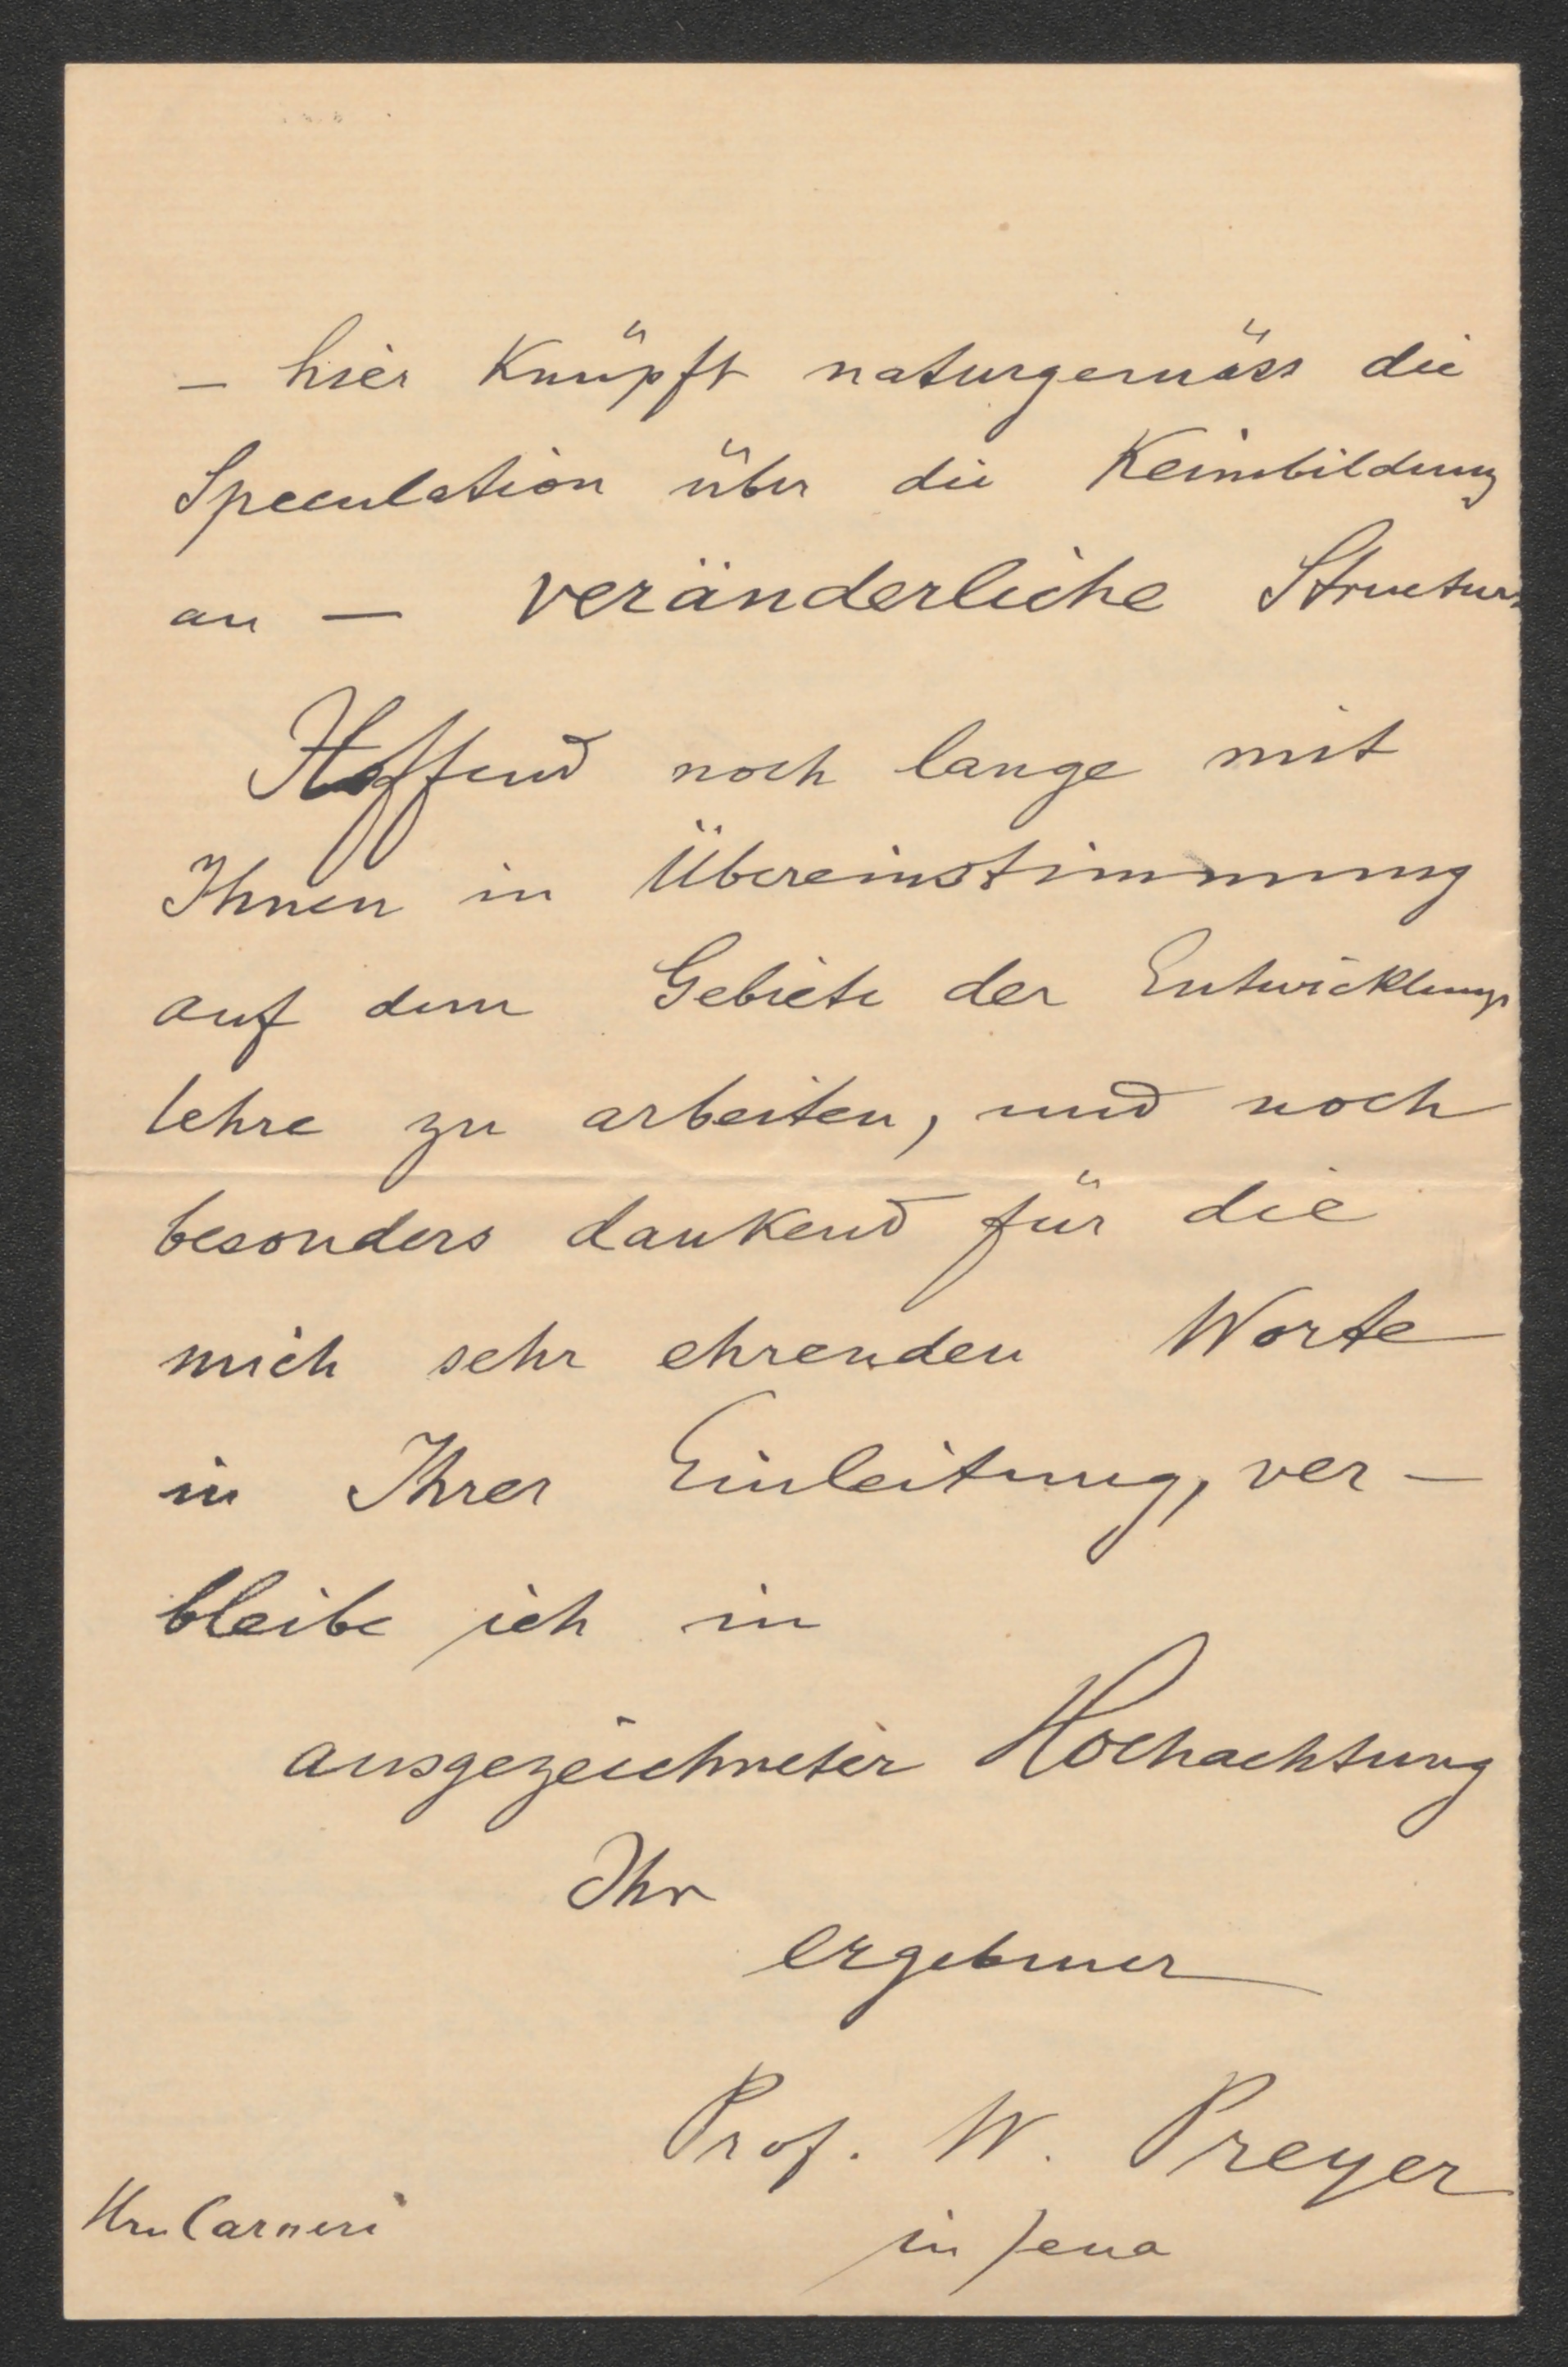 – hier knüpft naturgemäss die
Speculation über die Keimbildung
an – veränderliche Structur.
Hoffend noch lange mit
Ihnen in Übereinstimmung
auf dem Gebiete der Entwicklungs
lehre zu arbeiten, und noch
besonders dankend für die
mich sehr ehrenden Worte
in Ihrer Einleitung, ver–
bleibe ich in
ausgezeichneter Hochachtung
Ihr
ergebener
Prof. W. Preyer
in Jena
Hrn Carneri